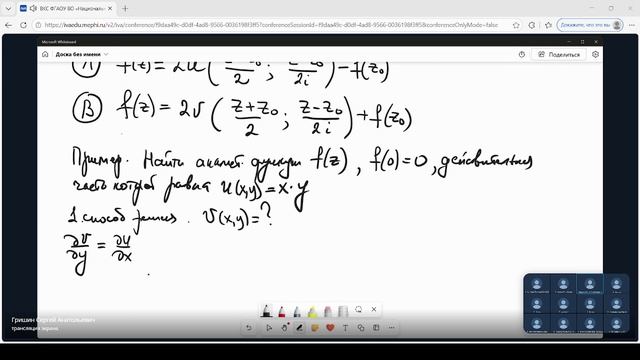 ВКС ФГАОУ ВО «Национальн
https://ivaedu.mephi.ru/v2/iva/conference/f9daa49c-d0df-4ad8-9566-0036198f3f85?conferenceSessionId=f9daa49c-d0df-4ad8-9566-0036198f3f85&conferenceOnlyMode=false
Докажите, что это вы
Microsoft Whiteboard
Доска без имени
Поделиться
(B) f(z) = 2v( (z+z₀)/2 ; (z-z₀)/2i ) + f(z₀)
Пример. Найти аналит. функцию f(z), f(0)=0, действительная
часть которой равна u(x,y) = x·y
1 способ решения. v(x,y)=?
∂v/∂y = ∂u/∂x
Гришин Сергей Анатольевич
трансляция экрана